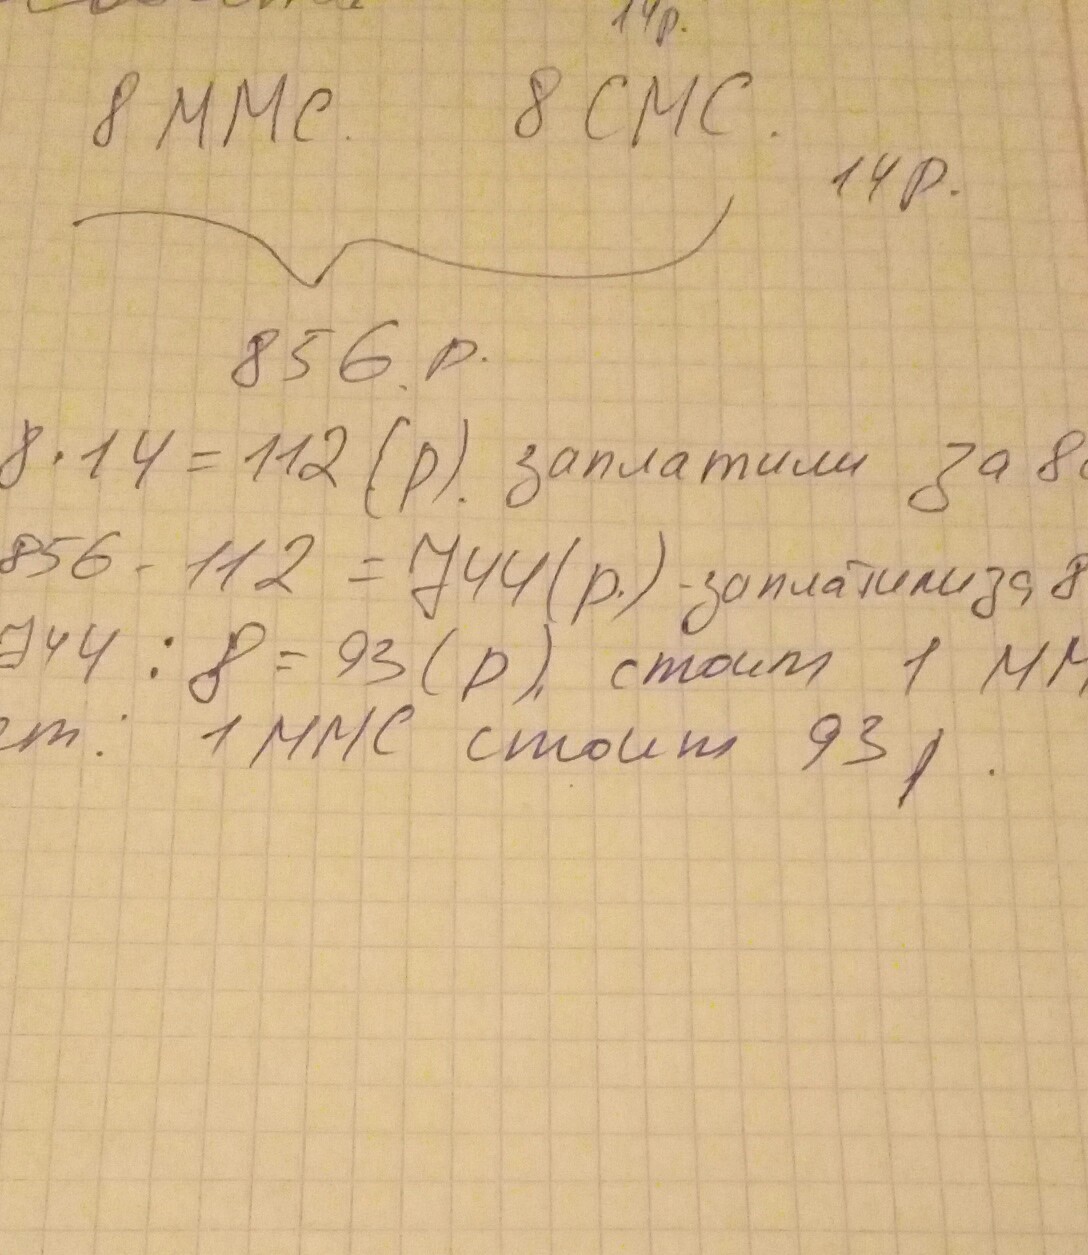 14р.
8 ММС. 8 СМС.
14р.
856 р.
8·14=112(р). заплатили за 8с
856 - 112 = 744(р.) -заплатили за 8
744 : 8 = 93(р). стоит 1 ММ
ет: 1 ММС стоит 93 р.